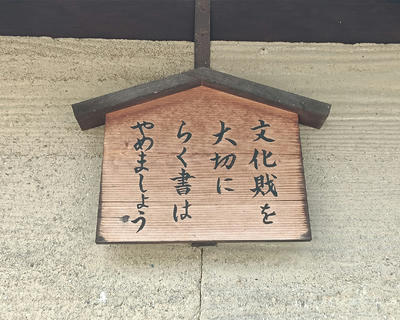 文化財を
大切に
らく書は
やめましょう